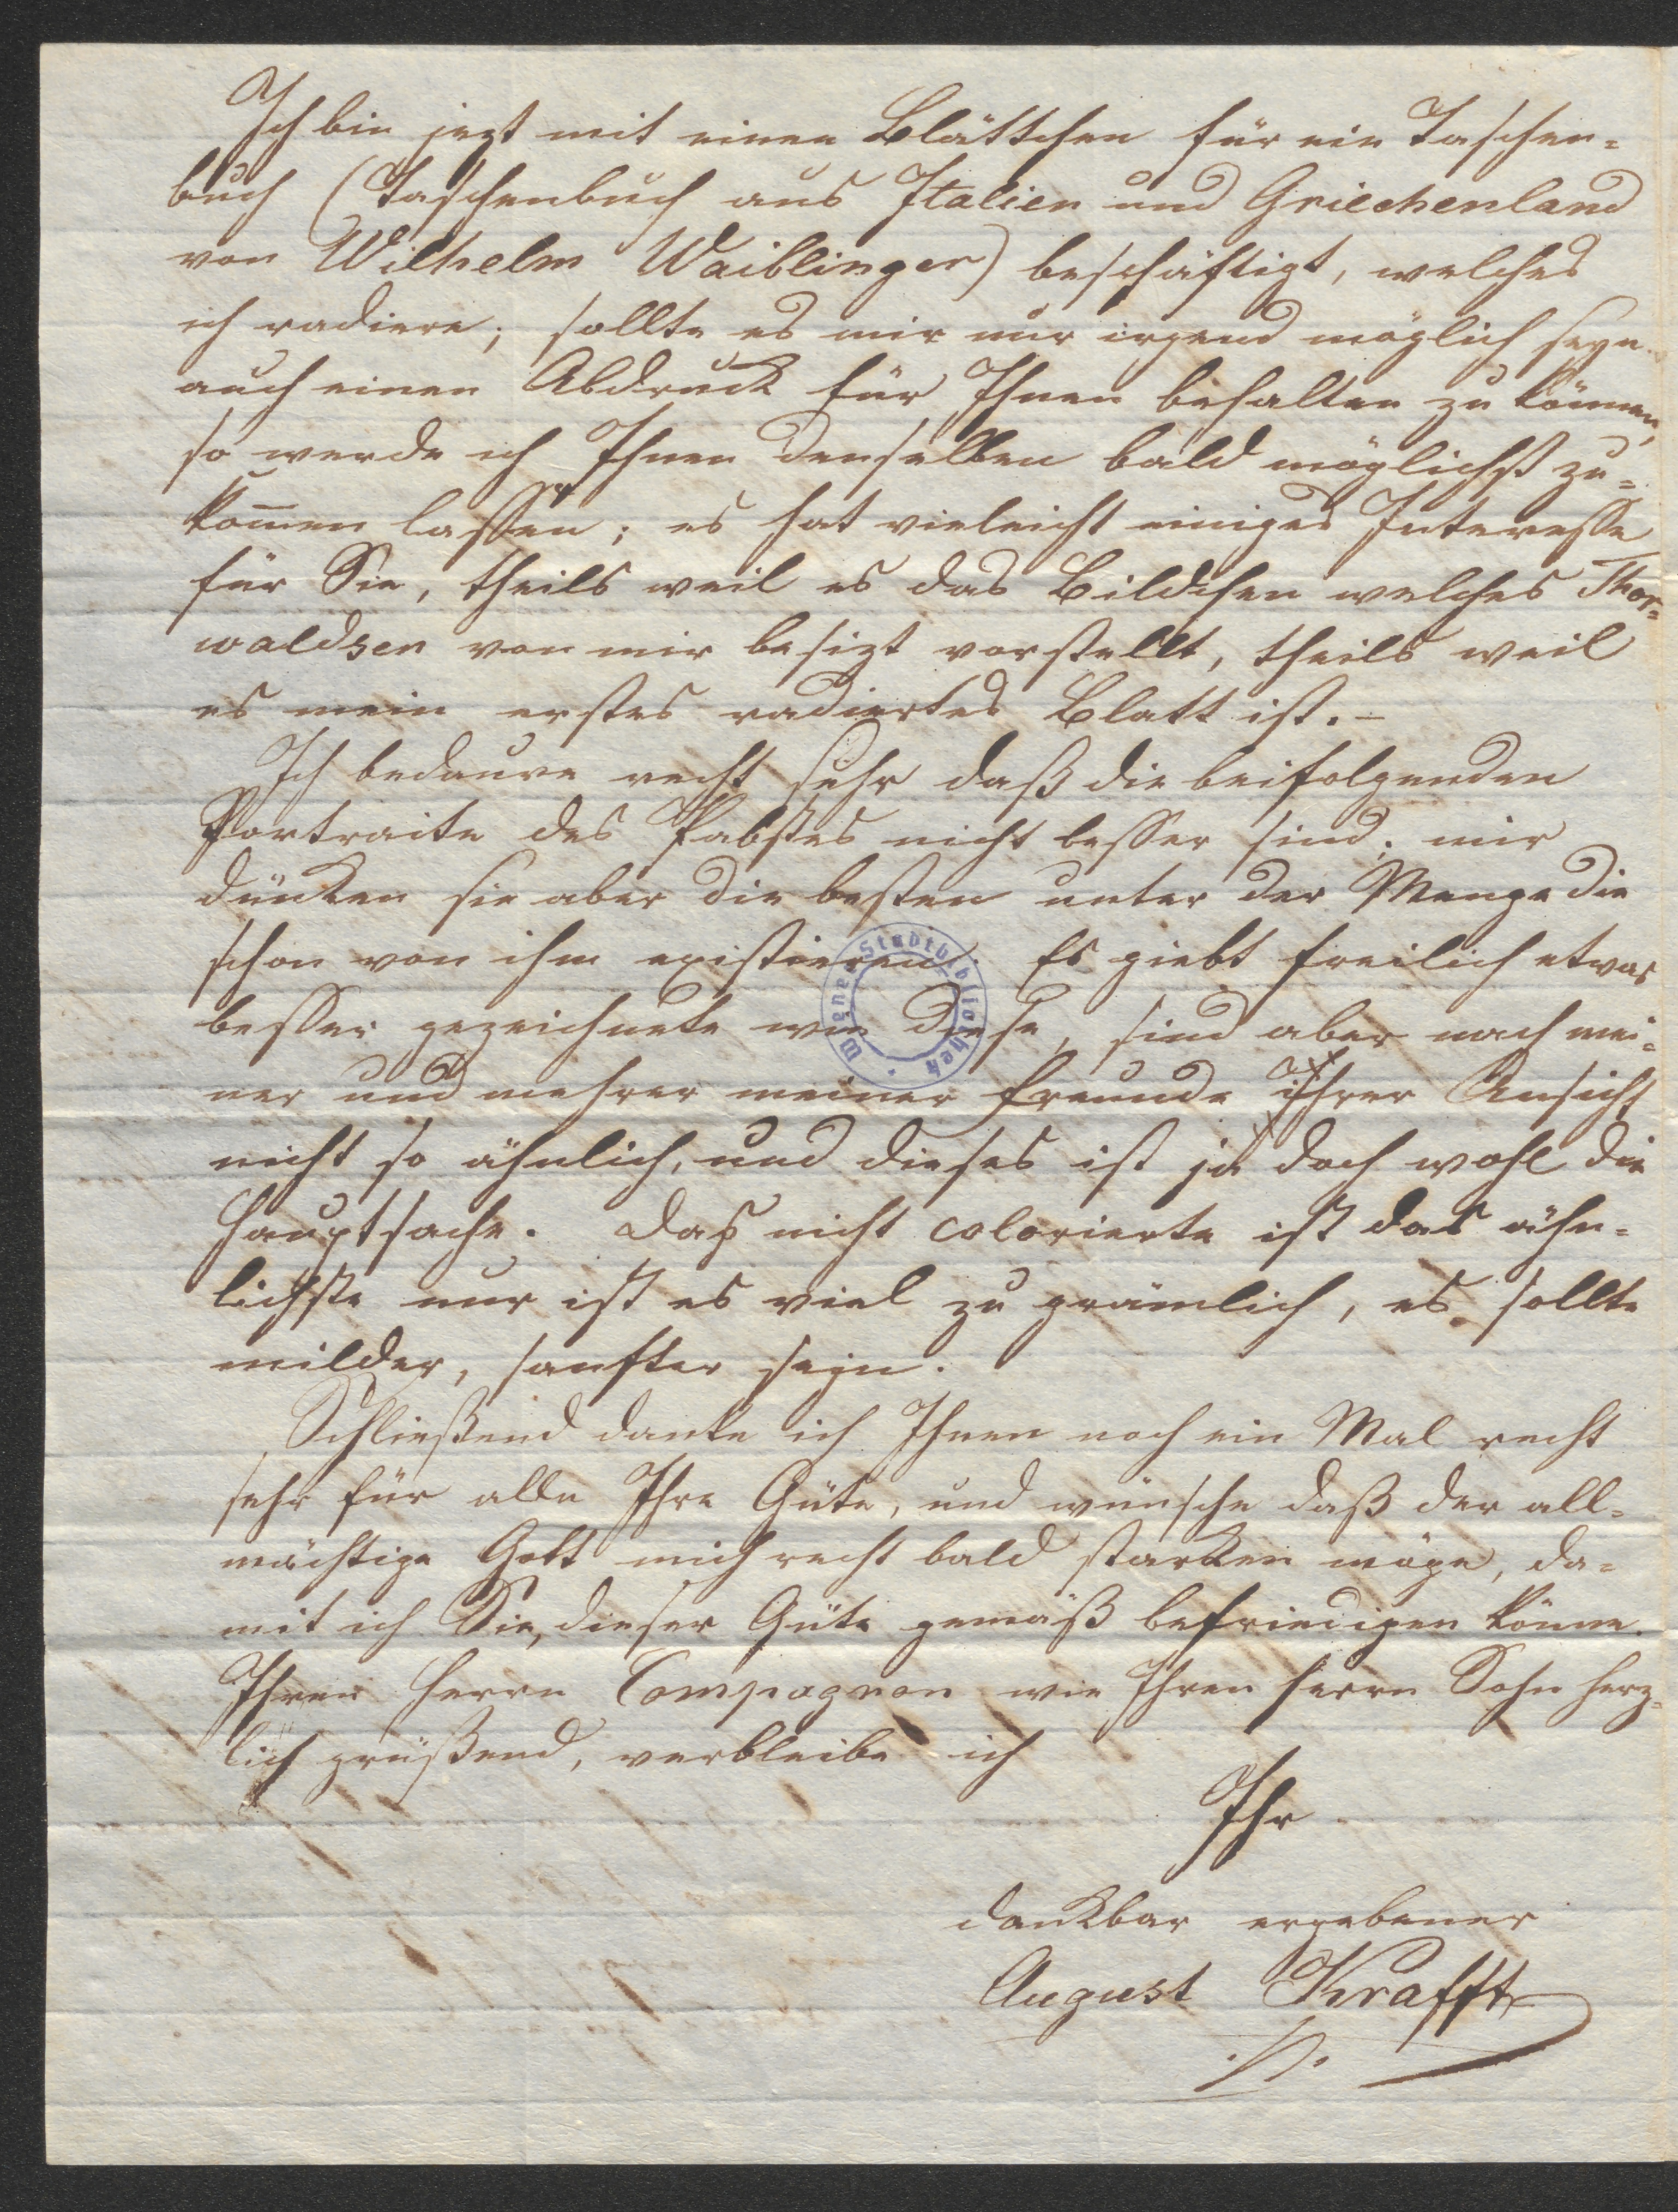 Ich bin jezt mit einen Blättchen für ein Taschen=
buch (Taschenbuch aus Italien und Griechenland
von Wilhelm Waiblinger) beschäftigt, welches
ich radiere; sollte es mir nur irgend möglich seyn
auch einen Abdruck für Ihnen behalten zu können,
so werde ich Ihnen denselben bald möglichst zu=
kom̅en lassen; es hat vieleicht einiges Interesse
für Sie, theils weil es das Bildchen welches Thor=
waldsen von mir besizt vorstellt, theils weil
es mein erstes radiertes Blatt ist.–
Ich bedaure recht sehr daß die beifolgenden
Portraite des Pabstes nicht besser sind; mir
dünken sie aber die besten unter der Menge die
schon von ihm existieren. Es giebt freilich etwas
besser gezeichnete wie diese, sind aber nach mei=
ner und mehrer meiner Freunde ihrer Ansicht
nicht so ähnlich, und dieses ist ja doch wohl die
Hauptsache. Das nicht colorierte ist das ähn=
lichste nur ist es viel zu grämlich, es sollte
milder, sanfter seyn.
Schließend danke ich Ihnen noch ein Mal recht
sehr für alle Ihre Güte, und wünsche daß der all=
mächtige Gott mich recht bald starken möge, da=
mit ich Sie, dieser Güte gemäß befriedigen könne.
Ihren Herrn Compagnon wie Ihren Herrn Sohn herz=
lich grüßend, verbleibe ich
Ihr
dankbar ergebener
August Krafft
Wiener Stadtbibliothek